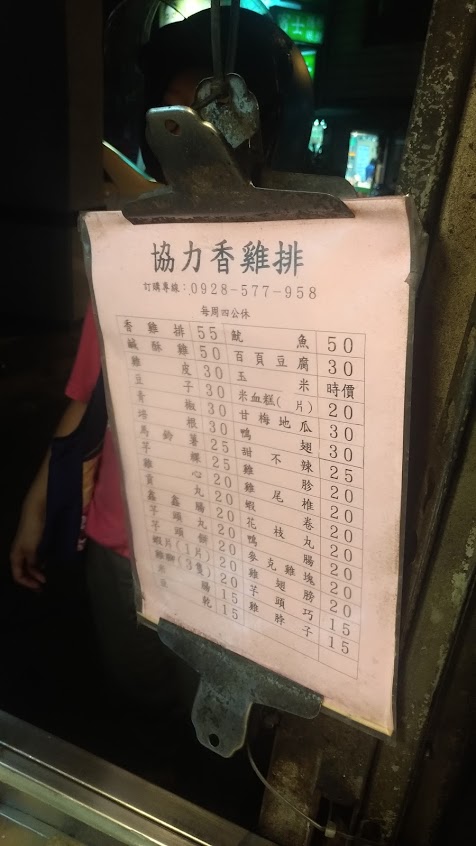 協力香雞排
訂購專線：0928-577-958
每周四公休
香雞排 55 魷魚 50
鹹酥雞 50 百頁豆腐 30
雞皮 30 玉米 時價
豆子 30 米血糕(片) 20
青椒 30 甘梅地瓜 30
培根 30 鴨翅 30
馬鈴薯 25 甜不辣 25
芋粿 25 雞胗 20
雞心 20 雞尾椎 20
貢丸 20 蝦卷 20
鑫鑫腸 20 花枝丸 20
芋頭丸 20 鴨腸 20
芋頭餅 20 麥克雞塊 20
蝦片(1片) 20 雞翅膀 20
(3隻) 20 芋頭巧 15
米腸 15 雞脖子 15
豆乾 15